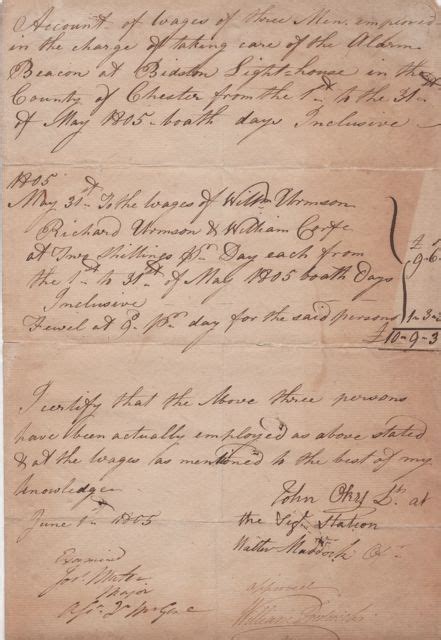 Account of Wages of three Men, employed
in the charge of taking care of the Alarm
Beacon at Bidston Light=house in the
County of Chester from the 1st to the 31st
of May 1805 boath days Inclusive
1805
May 31st To the Wages of Willm Urmson
Richard Urmson & William
at Two Shillings pr Day each from
the 1st to 31st of May 1805 boath Days
Inclusive
Fewel at 9 pr day for the said persons
£
9-6
1-3-3
£10-9-3
I certify that the Above three persons
have been actually employed as above stated
& at the wages as mentioned to the best of my
knowledge
June 1st 1805
John Lt. at
the Sigl Station
Walter
Examined
Major
approved
William